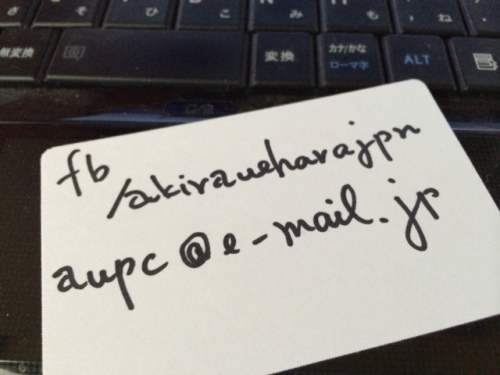 ひ
こ
み
も
ね
無変換
変換
カナ/かな
ローマ字
ALT
fb
/akiraueharajpn
aupc@e-mail.jp